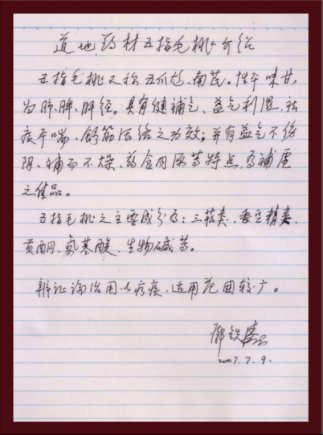 道地药材五指毛桃介绍
五指毛桃又称五爪龙、南芪。性平味甘,
归肺、脾、肝经。具有健补气、益气利湿、祛
痰平喘、舒筋活络之功效;并有益气不伤
阴、补而不燥、药食同源等特点,为补虚
之佳品。
五指毛桃之主要成分为:三萜类、香豆精类、
黄酮、氨基酸、生物碱等。
辨证论治用以疗疾,适用范围较广。
邓铁涛
2007.7.9.